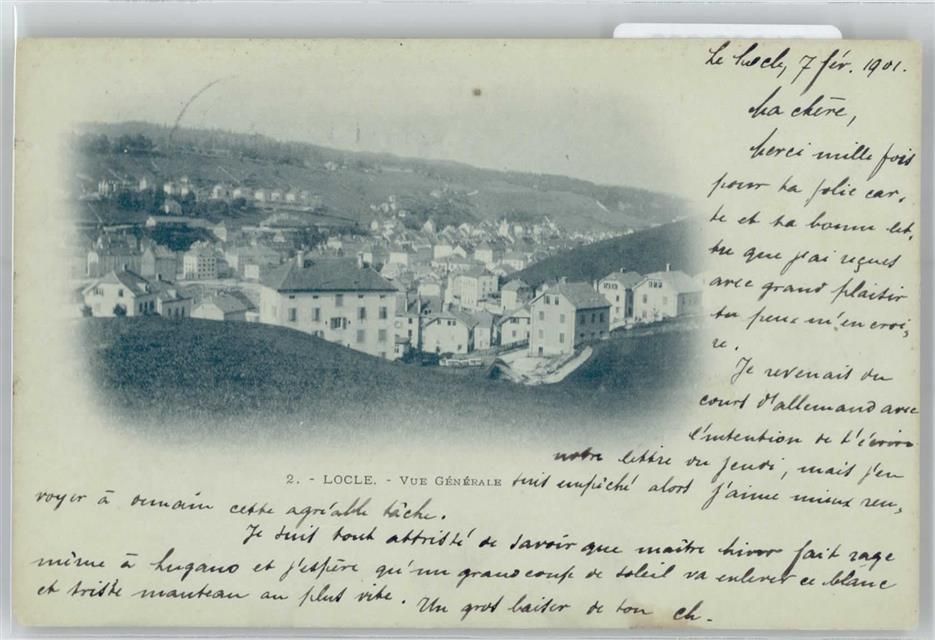 Le Locle, 7 fév. 1901.
Ma chère,
Merci mille fois
pour ta jolie car,
te et ta bonne let,
tre que j'ai reçues
avec grand plaisir
tu peux m'en croi,
re.
Je revenais du
cours d'allemand avec
l'intention de t'écrire
notre lettre du jeudi, mais j'en
2. - LOCLE. - VUE GÉNÉRALE
suis empêché alors j'aime mieux ren,
voyer à demain cette agréable tâche.
Je suis tout attristé de savoir que maître hiver fait rage
même à Lugano et j'espère qu'un grand coup de soleil va enlever ce blanc
et triste manteau au plus vite. Un gros baiser de ton ch.